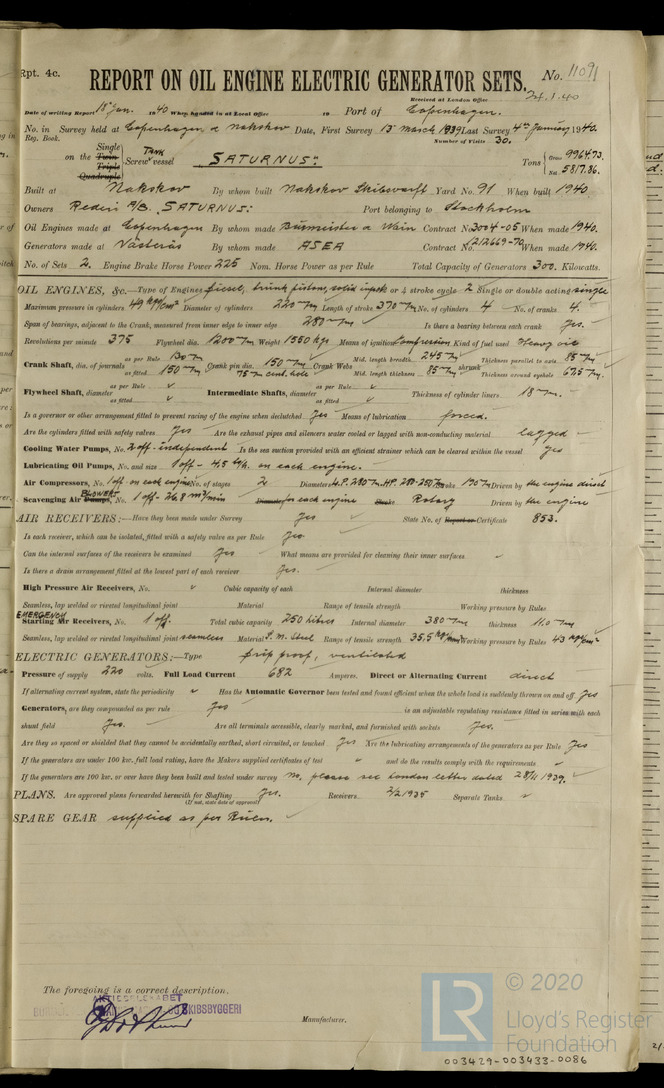 Rpt. 4c.
REPORT ON OIL ENGINE ELECTRIC GENERATOR SETS.
No. 11091
Received at London Office 24.1.40
Date of writing Report 15 Jan. 1940 When handed in at Local Office 19 Port of Copenhagen.
No. in Reg. Book. Survey held at Copenhagen & Nakskov Date, First Survey 15 March 1939 Last Survey 4th January 1940.
Number of Visits 30.
on the Single Twin Triple Quadruple Screw Tank vessel "SATURNUS" Tons Gross 9964.73. Net 5817.86.
Built at Nakskov By whom built Nakskov Skibsværft Yard No. 91 When built 1940
Owners Rederi A/B. "SATURNUS" Port belonging to Stockholm
Oil Engines made at Copenhagen By whom made Burmeister & Wain Contract No. 3004-05 When made 1940.
Generators made at Västerås By whom made ASEA Contract No. 212669-70 When made 1940.
No. of Sets 2. Engine Brake Horse Power 225 Nom. Horse Power as per Rule Total Capacity of Generators 300. Kilowatts.
OIL ENGINES, &c.—Type of Engines Diesel, trunk piston, solid inject. 2 or 4 stroke cycle 2 Single or double acting single
Maximum pressure in cylinders 49 kg/cm² Diameter of cylinders 220 m/m Length of stroke 370 m/m No. of cylinders 4 No. of cranks 4.
Span of bearings, adjacent to the Crank, measured from inner edge to inner edge 280 m/m Is there a bearing between each crank Yes.
Revolutions per minute 375 Flywheel dia. 1200 m/m Weight 1580 kgs Means of ignition Compression Kind of fuel used Heavy oil
Crank Shaft, dia. of journals as per Rule 130 m/m as fitted 150 m/m Crank pin dia. 150 m/m 75 m/m cent. hole Crank Webs Mid. length breadth 245 m/m Mid. length thickness 85 m/m shrunk Thickness parallel to axis 85 m/m Thickness around eyehole 67.5 m/m.
Flywheel Shaft, diameter as per Rule as fitted Intermediate Shafts, diameter as per Rule as fitted Thickness of cylinder liners 18 m/m.
Is a governor or other arrangement fitted to prevent racing of the engine when declutched Yes Means of lubrication forced.
Are the cylinders fitted with safety valves Yes Are the exhaust pipes and silencers water cooled or lagged with non-conducting material lagged
Cooling Water Pumps, No. 2 off - independent Is the sea suction provided with an efficient strainer which can be cleared within the vessel Yes
Lubricating Oil Pumps, No. and size 1 off - 4.5 t/h. on each engine.
Air Compressors, No. 1 off on each engine No. of stages 2 Diameters L.P. 280 m/m. H.P. 280-250 m/m Stroke 190 m/m Driven by the engine direct
Scavenging Air Pumps, BLOWERS No. 1 off - 26.8 m³/min Diameter for each engine Stroke Rotary Driven by the engine
AIR RECEIVERS:—Have they been made under Survey Yes State No. of Report or Certificate 853.
Is each receiver, which can be isolated, fitted with a safety valve as per Rule Yes.
Can the internal surfaces of the receivers be examined Yes What means are provided for cleaning their inner surfaces.
Is there a drain arrangement fitted at the lowest part of each receiver Yes.
High Pressure Air Receivers, No. Cubic capacity of each Internal diameter thickness
Seamless, lap welded or riveted longitudinal joint Material Range of tensile strength Working pressure by Rules
EMERGENCY
Starting Air Receivers, No. 1 off. Total cubic capacity 250 litres Internal diameter 380 m/m thickness 11.0 m/m
Seamless, lap welded or riveted longitudinal joint seamless Material S.M. Steel Range of tensile strength 35.5 kg/mm² Working pressure by Rules 43 kg/cm²
ELECTRIC GENERATORS:—Type Drip proof, ventilated
Pressure of supply 220 volts. Full Load Current 682 Amperes. Direct or Alternating Current direct
If alternating current system, state the periodicity Has the Automatic Governor been tested and found efficient when the whole load is suddenly thrown on and off Yes
Generators, are they compounded as per rule Yes is an adjustable regulating resistance fitted in series with each
shunt field Yes. Are all terminals accessible, clearly marked, and furnished with sockets Yes.
Are they so spaced or shielded that they cannot be accidentally earthed, short circuited, or touched Yes Are the lubricating arrangements of the generators as per Rule Yes
If the generators are under 100 kw. full load rating, have the Makers supplied certificates of test and do the results comply with the requirements
If the generators are 100 kw. or over have they been built and tested under survey No. please see London letter dated 28/11 1939.
PLANS. Are approved plans forwarded herewith for Shafting Yes. Receivers 2/2 1935 Separate Tanks
(If not, state date of approval)
SPARE GEAR supplied as per Rules.
The foregoing is a correct description.
AKTIESELSKABET
SKIBSBYGGERI
Manufacturer.
LR
© 2020
Lloyd's Register
Foundation
003429-003433-0086